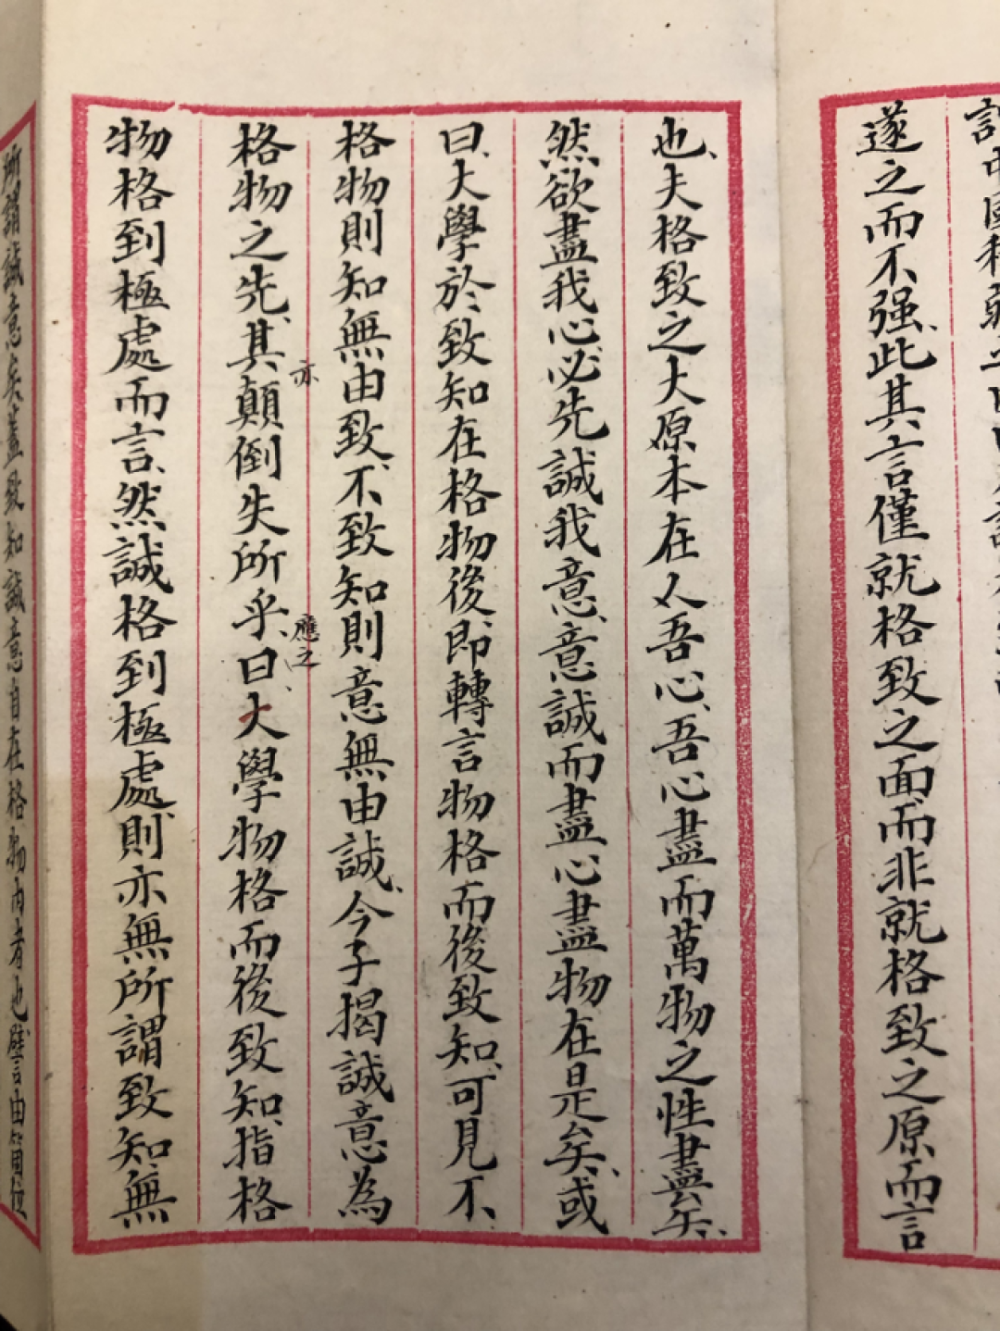 遂之而不强、此其言僅就格致之面而非就格致之原而言
也、夫格致之大原本在人吾心、吾心盡而萬物之性盡矣、
然欲盡我心必先誠我意、意誠而盡心盡物在是矣、或
曰、大學於致知在格物後、即轉言物格而後致知、可見不
格物則知無由致、不致知則意無由誠、今子揭誠意為
亦
應之
格物之先、其顛倒失所乎、曰、大學物格而後致知、指格
物格到極處而言、然誠格到極處、則亦無所謂致知、無
所謂誠意矣蓋致知誠意自在格物內者也、譬由